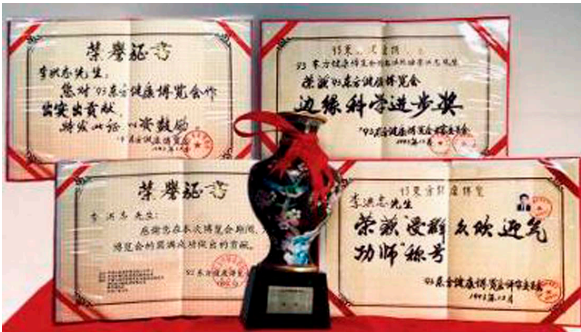 荣誉证书
李洪志先生：
您对'93东方健康博览会作
出突出贡献，
特发此证，以资鼓励。
'93东方健康博览会
荣获'93东方健康博览会
边缘科学进步奖
'93东方健康博览会评审委员会
1993年12月
荣誉证书
李洪志先生：
感谢您在本次博览会期间，
博览会的圆满成功做出的贡献。
93东方健康博览会
93东方健康博览
李洪志先生
荣获“受群众欢迎气
功师”称号
93东方健康博览会评审委员会
1993年12月